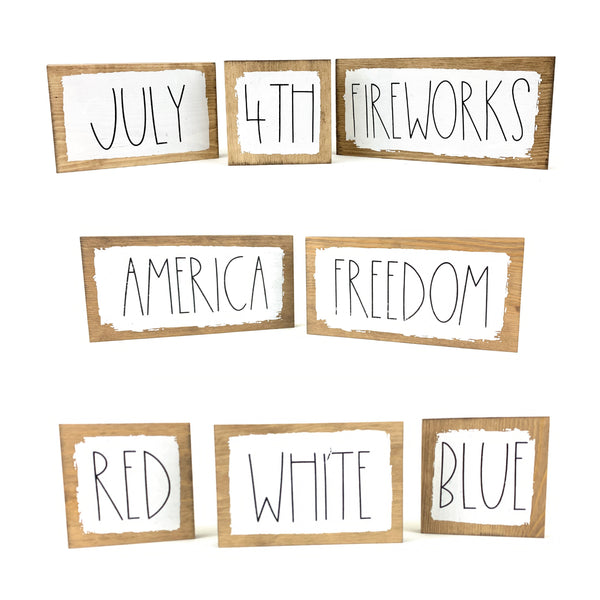 JULY 4TH FIREWORKS
AMERICA FREEDOM
RED WHITE BLUE